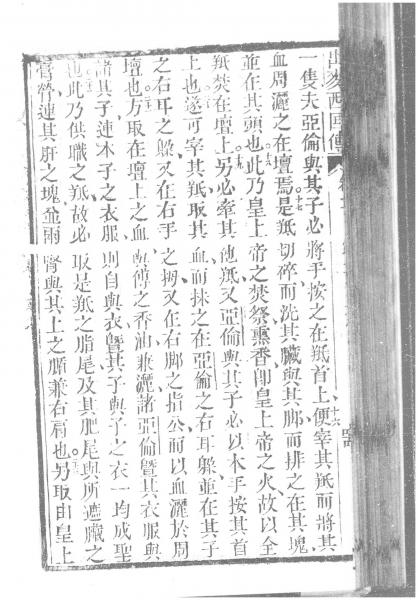 出麥西國傳
一隻夫亞倫與其子必將手按之在羝首上。十六便宰其羝而將其
血周灑之在壇焉。十七是羝切碎而洗其臟與其脚而排之在其塊
並在其頭也。十八此乃皇上帝之焚祭薰香卽皇上帝之火故以全
羝焚在壇上。十九另必牽其他羝又亞倫與其子必以木手按其首
上也。遂可宰其羝取其血而抹之在亞倫之右耳躲並在其子
之右耳之躲又在右手之拇又在右脚之指公而以血灑於周
壇也。方取在壇上之血與傅之香油兼灑諸亞倫曁其衣服與
諸其子連木子之衣服則自與衣曁其子與子之衣一均成聖
也。此乃供職之羝故必取是羝之脂尾及其肥尾與所遮臟之
膏膋連其肝之塊並兩腎與其上之腯兼右肩也。另取由皇上